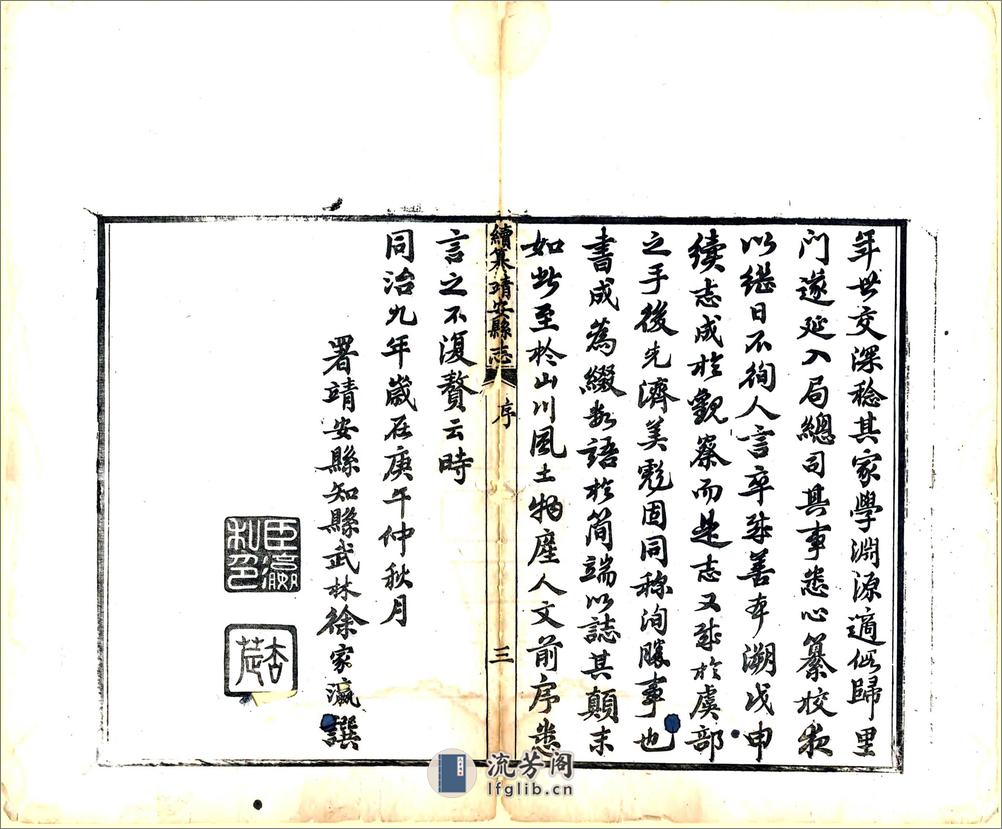 年世交深稔其家學淵源適伱歸里
門遂延入局總司其事悉心纂校夜
以繼日不徇人言卒成善本溯戊申
續志成於觀察而是志又成於虞部
之手後先濟美彪固同称洵勝事也
書成為綴數語於簡端以誌其顛末
如此至於山川風土物產人文前序悉
續纂靖安縣志
序
三
言之不復贅云時
同治九年歲在庚午仲秋月
署靖安縣知縣武林徐家瀛譔
臣瀛
私印
流芳阁
lfglib.cn